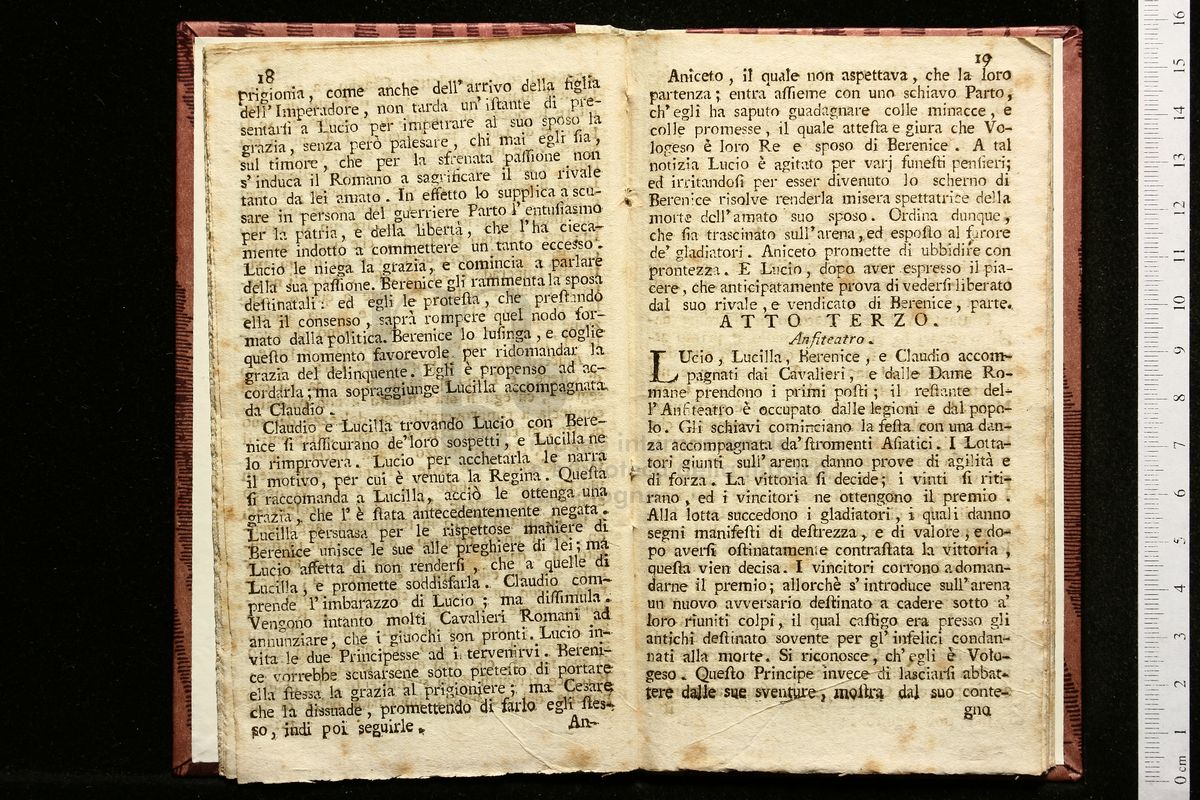 18
prigionia, come anche dell'arrivo della figlia
dell'Imperadore, non tarda un'iſtante di pre-
ſentarſi a Lucio per impetrare al ſuo ſpoſo la
grazia, ſenza però paleſare, chi mai egli ſia,
ſul timore, che per la sfrenata paſſione non
s'induca il Romano a ſagrificare il ſuo rivale
tanto da lei amato. In effetto lo ſupplica a scu-
ſare in perſona del guerriere Parto l'entuſiaſmo
per la patria, e della libertà, che l'ha cieca-
mente indotto a commettere un tanto ecceſſo.
Lucio le niega la grazia, e comincia a parlare
della ſua paſſione. Berenice gli rammenta la ſpoſa
deſtinatali: ed egli le proteſta, che preſtando
ella il conſenſo, ſaprà rompere quel nodo for-
mato dalla politica. Berenice lo luſinga, e coglie
queſto momento favorevole per ridomandar la
grazia del delinquente. Egli è propenſo ad ac-
cordarla; ma sopraggiunge Lucilla accompagnata
da Claudio.
Claudio e Lucilla trovando Lucio con Bere-
nice ſi raſſicurano de'loro ſospetti, e Lucilla ne
lo rimprovera. Lucio per acchetarla le narra
il motivo, per cui è venuta la Regina. Queſta
ſi raccomanda a Lucilla, acciò le ottenga una
grazia, che l'è ſtata antecedentemente negata.
Lucilla perſuasa per le riſpettose maniere di
Berenice uniſce le ſue alle preghiere di lei; ma
Lucio affetta di non renderſi, che a quelle di
Lucilla, e promette soddisfarla. Claudio com-
prende l'imbarazzo di Lucio; ma diſſimula.
Vengono intanto molti Cavalieri Romani ad
annunziare, che i giuochi ſon pronti. Lucio in-
vita le due Principeſſe ad i tervenirvi. Bereni-
ce vorrebbe scusarsene ſotto preteſto di portare
ella ſteſſa la grazia al prigioniere; ma Ceſare
che la diſſuade, promettendo di farlo egli ſteſ-
ſo, indi poi ſeguirle.
An-
19
Aniceto, il quale non aspettava, che la loro
partenza; entra aſſieme con uno schiavo Parto,
ch'egli ha saputo guadagnare colle minacce, e
colle promeſſe, il quale atteſta e giura che Vo-
logeſo è loro Re e sposo di Berenice. A tal
notizia Lucio è agitato per varj funeſti penſieri;
ed irritandoſi per esser divenuto lo scherno di
Berenice riſolve renderla misera spettatrice della
morte dell'amato suo sposo. Ordina dunque,
che ſia trascinato sull'arena, ed esposto al furore
de' gladiatori. Aniceto promette di ubbidire con
prontezza. E Lucio, dopo aver espresso il pia-
cere, che anticipatamente prova di vederſi liberato
dal suo rivale, e vendicato di Berenice, parte.
ATTO TERZO.
Anfiteatro.
LUcio, Lucilla, Berenice, e Claudio accom-
pagnati dai Cavalieri, e dalle Dame Ro-
mane prendono i primi poſti; il reſtante del-
l'Anfiteatro è occupato dalle legioni e dal popo-
lo. Gli schiavi cominciano la feſta con una dan-
za accompagnata da'ſtromenti Aſiatici. I Lotta-
tori giunti sull'arena danno prove di agilità e
di forza. La vittoria ſi decide; i vinti ſi riti-
rano, ed i vincitori ne ottengono il premio.
Alla lotta succedono i gladiatori, i quali danno
segni manifeſti di deſtrezza, e di valore, e do-
po averſi oſtinatamente contraſtata la vittoria,
queſta vien decisa. I vincitori corrono a doman-
darne il premio; allorchè s'introduce sull'arena
un nuovo avversario deſtinato a cadere sotto a'
loro riuniti colpi, il qual caſtigo era presso gli
antichi deſtinato sovente per gl'infelici condan-
nati alla morte. Si riconosce, ch'egli è Volo-
geso. Queſto Principe invece di lasciarſi abbat-
tere dalle sue sventure, moſtra dal suo conte-
gno